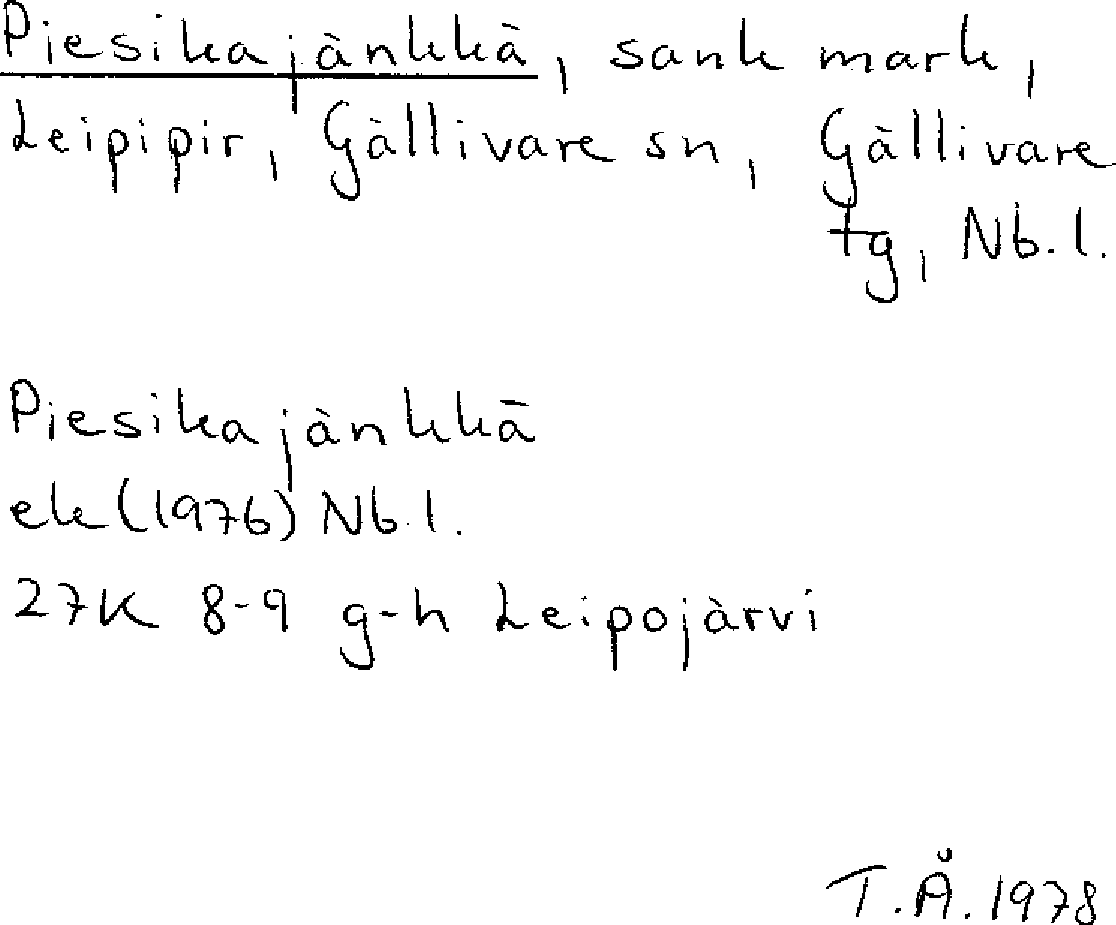 Piesikajänkkä, sank mark,
Leipipir, Gällivare sn, Gällivare
tg, Nb.l.
Piesikajänkkä
ek (1976) Nb.l.
27K 8-9 g-h Leipojärvi
T.Å. 1978